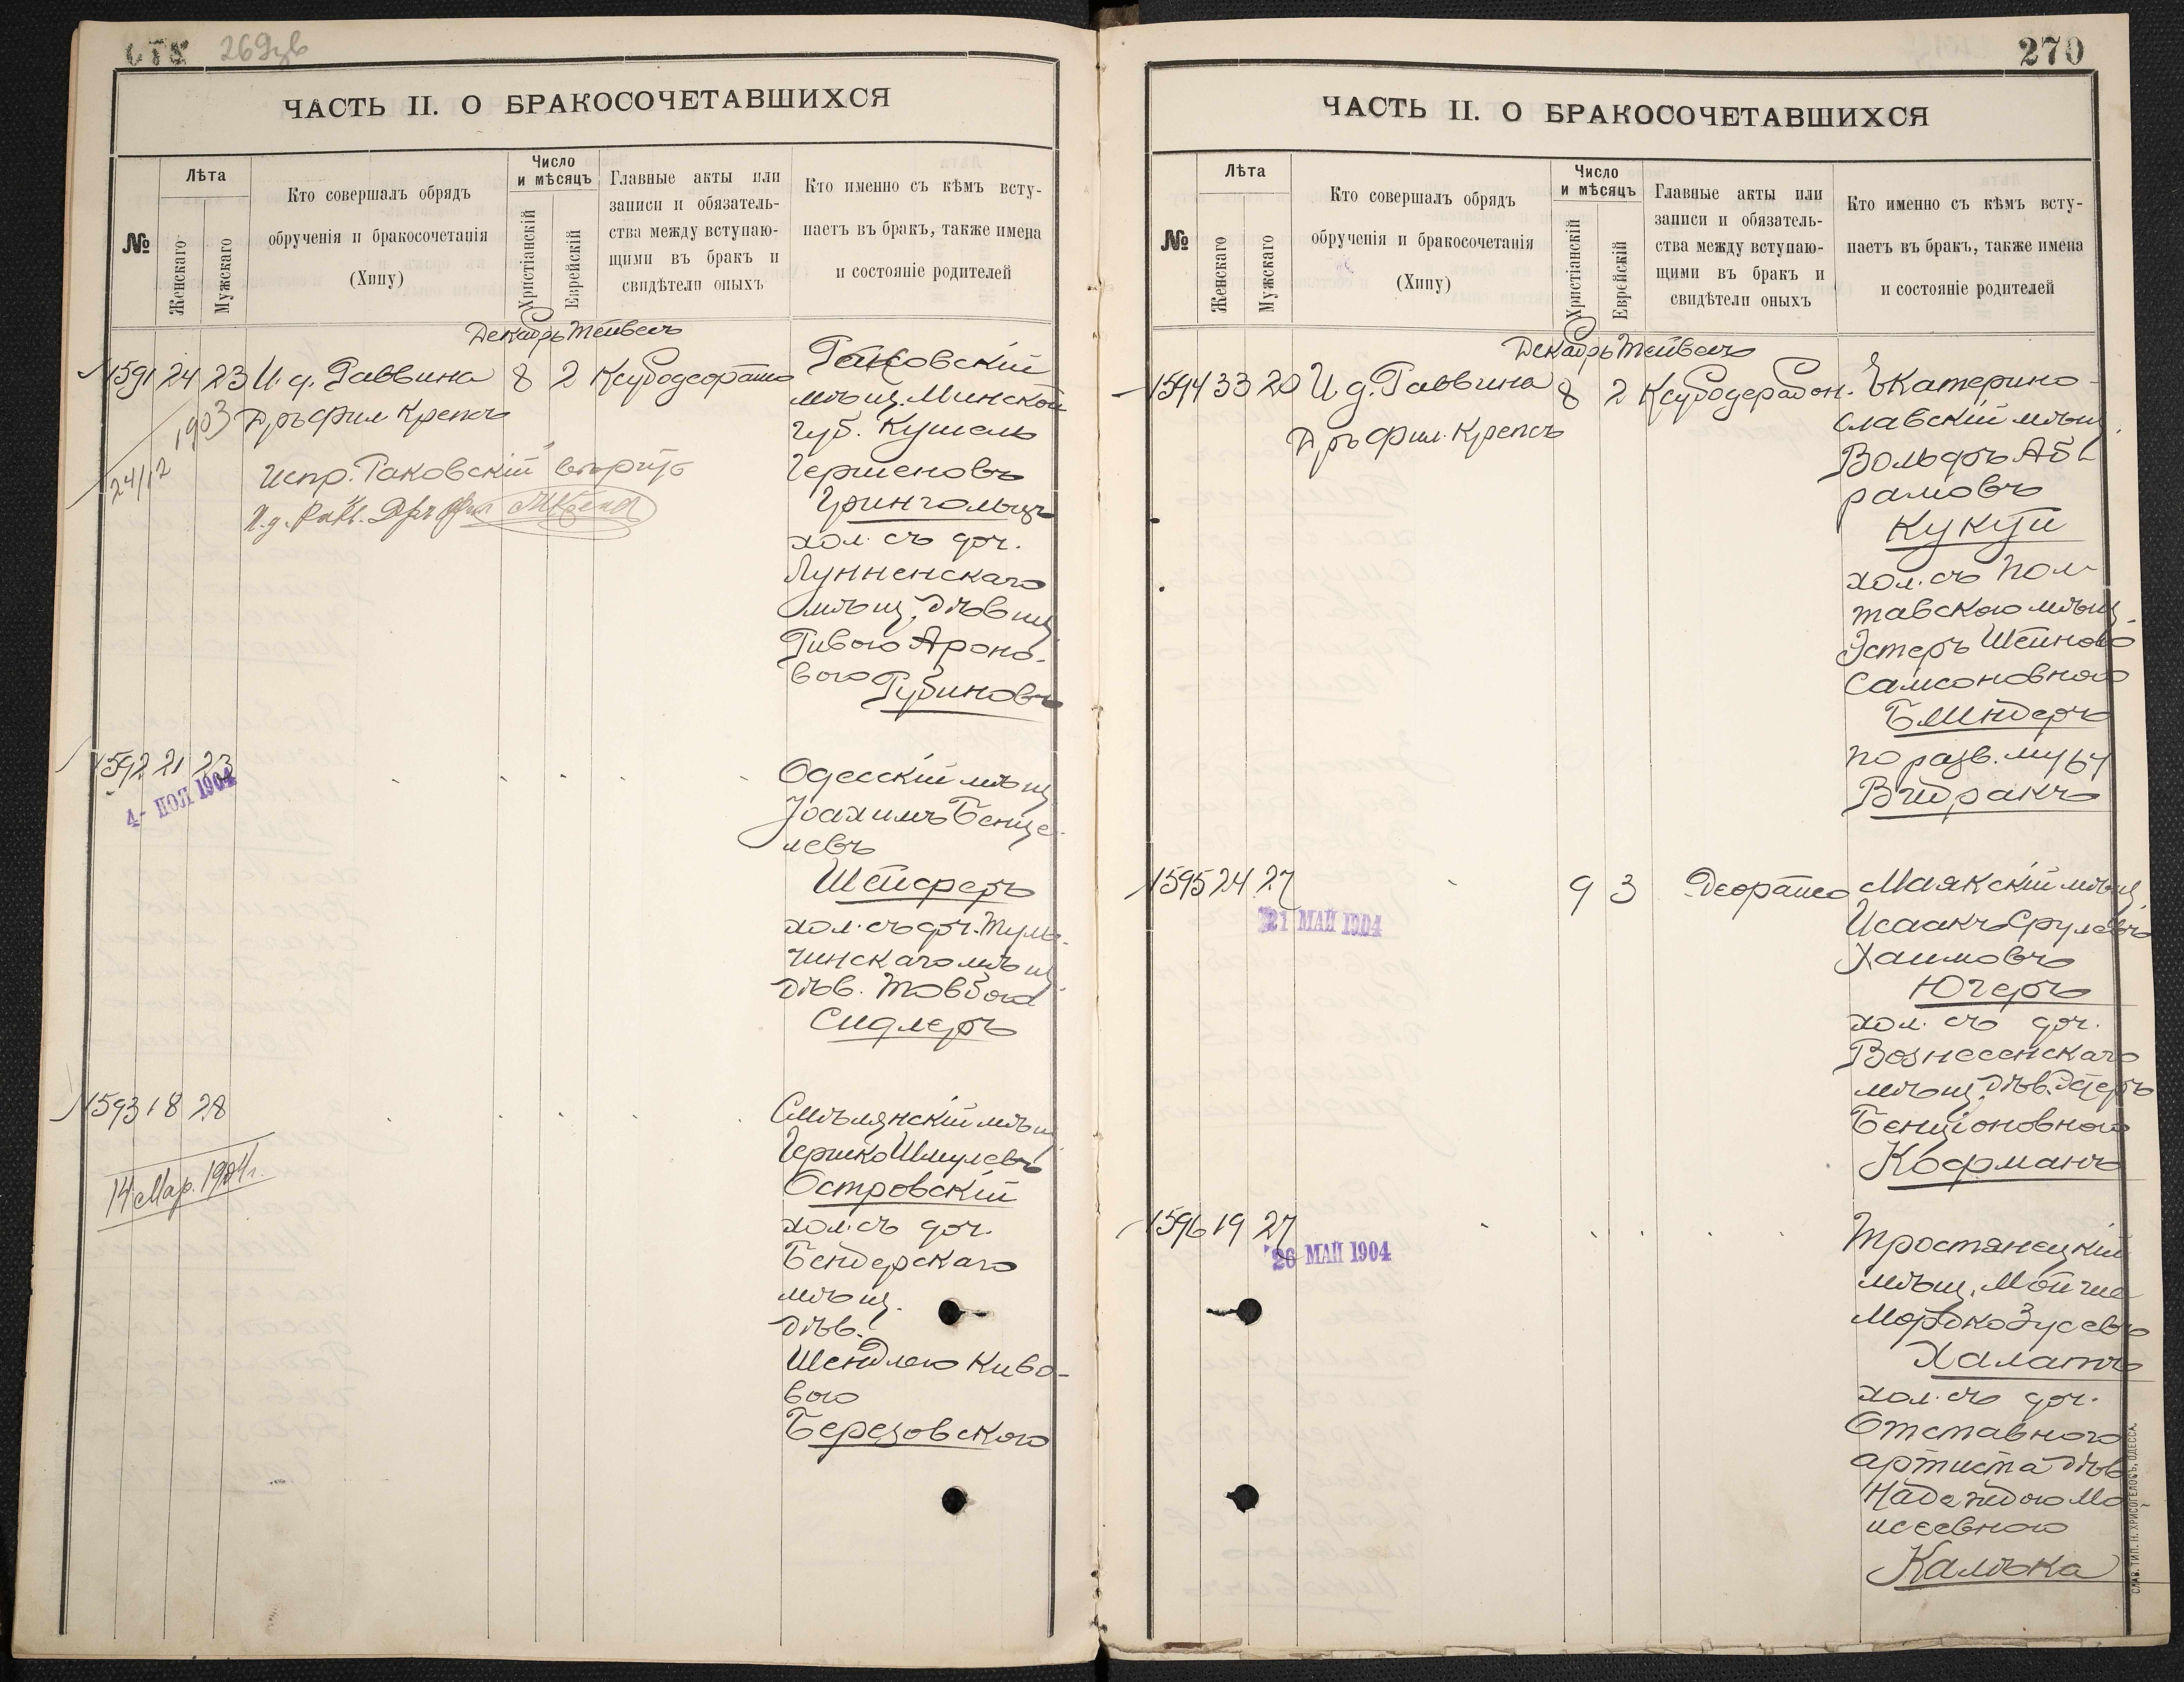 269 зв
ЧАСТЬ II. О БРАКОСОЧЕТАВШИХСЯ
№
Лѣта
Женскаго
Мужскаго
Кто совершалъ обрядъ
обрученія и бракосочетанія
(Хипу)
Число
и мѣсяцъ
Христіанскій
Еврейскій
Главные акты или
записи и обязатель-
ства между вступаю-
щими въ бракъ и
свидѣтели оныхъ
Кто именно съ кѣмъ всту-
паетъ въ бракъ, также имена
и состояніе родителей
Декабрь Тейвесъ
1591 24 23 И. д. Раввина 8 2
Дръ Фил Крепсъ
1903
24/12
Испр. "Раковскій"
И. д. Рав. Дръ Фил МКрепсъ
Раковскій
мѣщ. Минской
губ. Кушель
Гершеновъ
Грингольцъ
хол. съ доч.
Лунненскаго
мѣщ. дѣвиц.
Ривою Ароно-
вою Рубиновъ
1592 21 23
4- ІЮЛ 1904
Одесскій мѣщ.
Іоахимъ Бенце-
левъ
Шейферъ
хол. съ доч. Туль-
чинскаго мѣщ.
дѣв. Товбою
Сидлеръ
1593 18 28
14 Мар. 1904 г.
Смѣлянскій мѣщ.
Гершко Шмулевъ
Островскій
хол. съ доч.
Бендерскаго
мѣщ.
дѣв.
Шейндлею Киво-
вою
Березовскою
270
ЧАСТЬ II. О БРАКОСОЧЕТАВШИХСЯ
№
Лѣта
Женскаго
Мужскаго
Кто совершалъ обрядъ
обрученія и бракосочетанія
(Хипу)
Число
и мѣсяцъ
Христіанскій
Еврейскій
Главные акты или
записи и обязатель-
ства между вступаю-
щими въ бракъ и
свидѣтели оныхъ
Кто именно съ кѣмъ всту-
паетъ въ бракъ, также имена
и состояніе родителей
Декабрь Тейвесъ
1594 33 20 И д. Раввина 8 2
Дръ Фил. Крепсъ
Екатерино-
славскій мѣщ.
Вольфъ Аб-
рамовъ
Кукуй
хол. съ Пол-
тавскою мѣщ.
Эстеръ Шейною
Самсоновною
Блиндеръ
по разв. мужу
Видракъ
1595 24 27 9 3
21 МАЙ 1904
Маякскій мѣщ.
Исаакъ Срулевъ
Хаимовъ
Югеръ
хол. съ доч.
Вознесенскаго
мѣщ. дѣв. Эстеръ
Бенціоновною
Кофманъ
1596 19 27
26 МАЙ 1904
Тростянецкій
мѣщ. Мойше
Мордко Зусевъ
Халатъ
хол. съ доч.
Отставного
артиста дѣв.
Надеждою Мо-
исеевною
Калѣка
СЛАВ. ТИП. Н. ХРИСОГЕЛОСЪ, ОДЕССА.